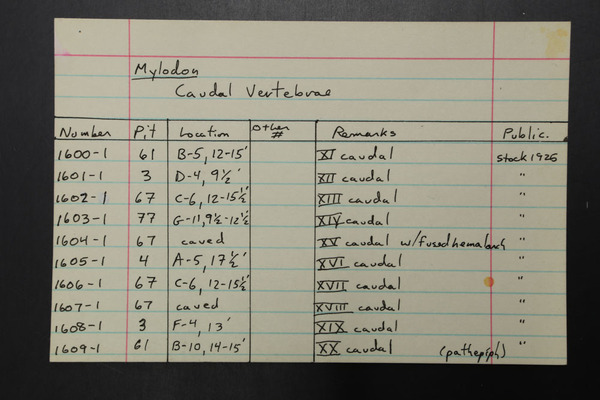 Mylodon
Caudal Vertebrae
Number Pit Location Other # Remarks Public.
1600-1 61 B-5, 12-15' XI caudal stock 1925
1601-1 3 D-4, 9½' XII caudal "
1602-1 67 C-6, 12-15½' XIII caudal "
1603-1 77 G-11, 9½-12½' XIV caudal "
1604-1 67 caved XV caudal w/fused hemal arch "
1605-1 4 A-5, 17½' XVI caudal "
1606-1 67 C-6, 12-15½' XVII caudal "
1607-1 67 caved XVIII caudal "
1608-1 3 F-4, 13' XIX caudal "
1609-1 61 B-10, 14-15' XX caudal (path epiph) "